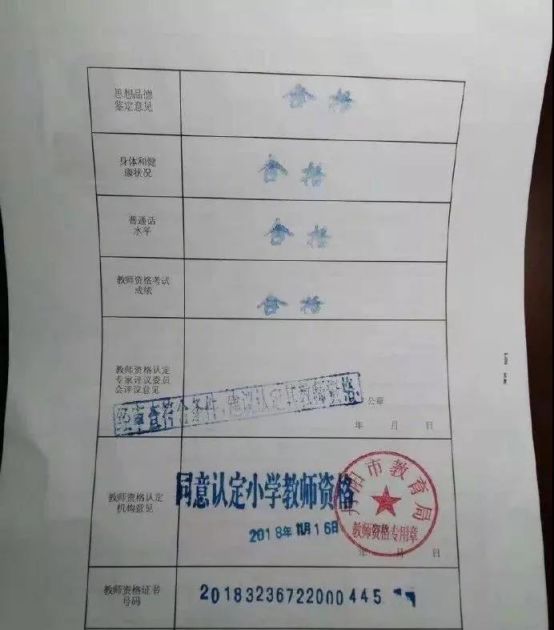 思想品德
鉴定意见
合格
身体和健
康状况
合格
普通话
水平
合格
教师资格考试
成绩
合格
教师资格认定
专家评议委员
会评议意见
公章
年 月 日
教师资格认定
机构意见
同意认定小学教师资格
2018年11月16日
阳市教育局
教师资格专用章
年 月 日
教师资格证书
号码
20183236722000445